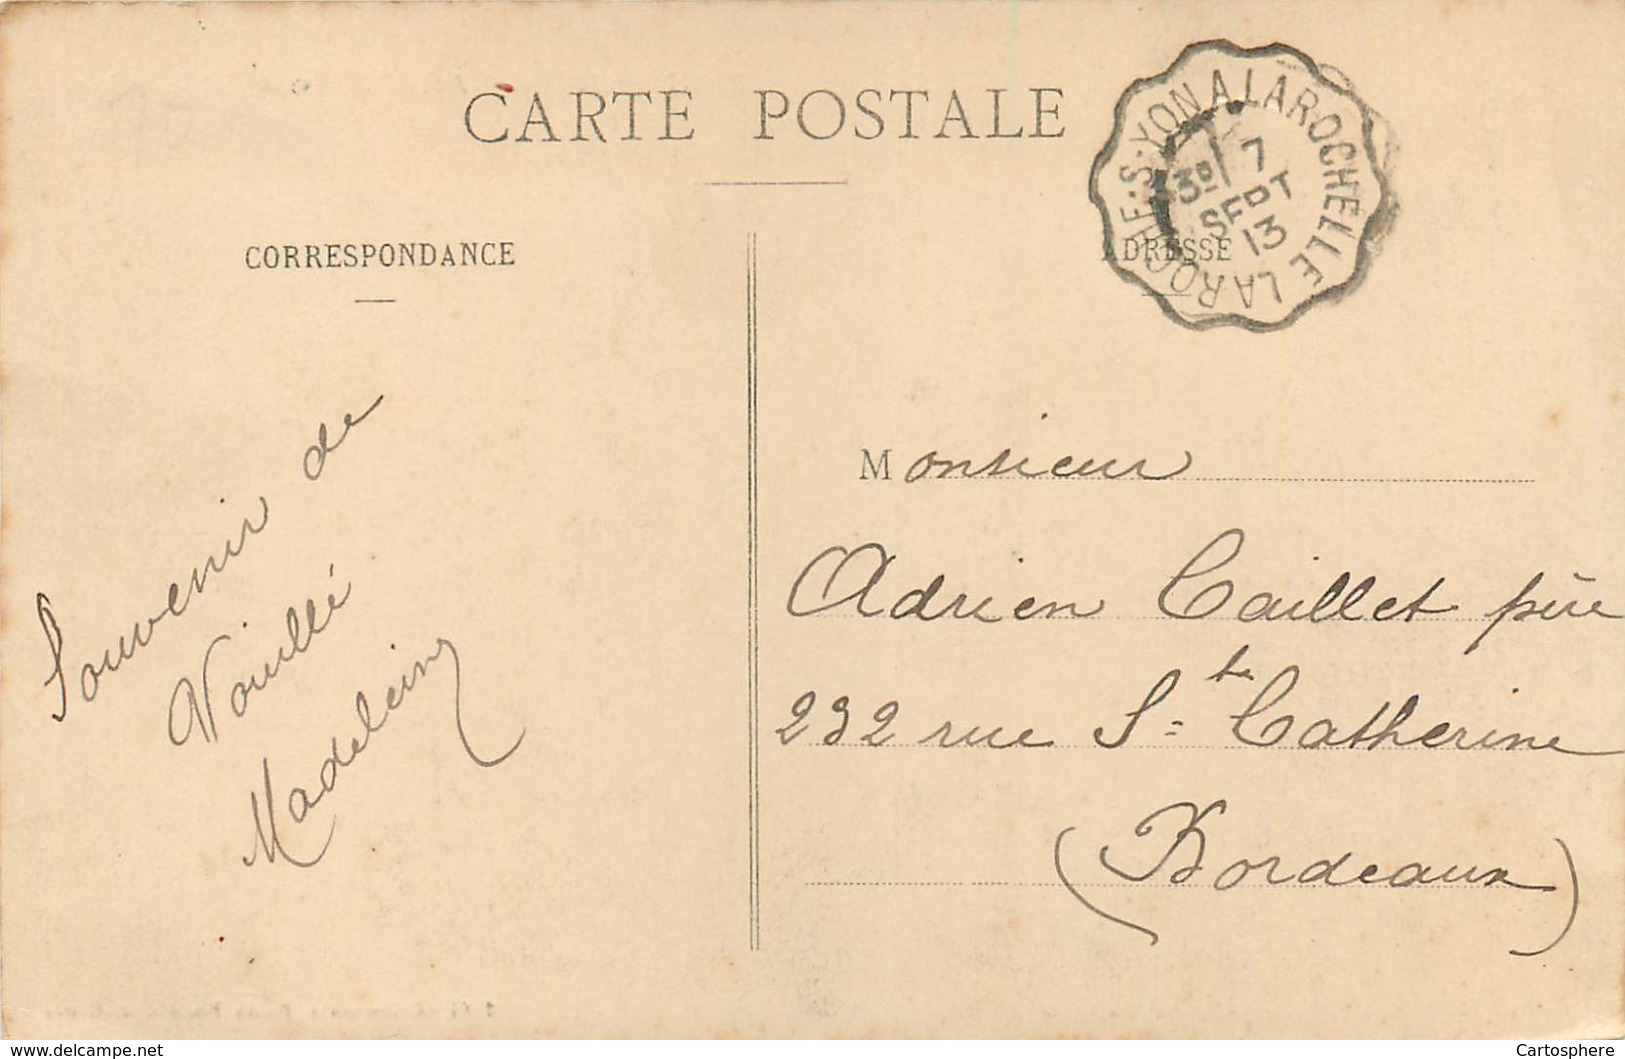 CARTE POSTALE
CORRESPONDANCE
ADRESSE
LAROCHE·S·YON A LAROCHELLE
7
SEPT
13
Souvenir de
Vouillé
Madeleine
Monsieur
Adrien Caillet père
232 rue Ste Catherine
(Bordeaux)
www.delcampe.net
Cartosphere